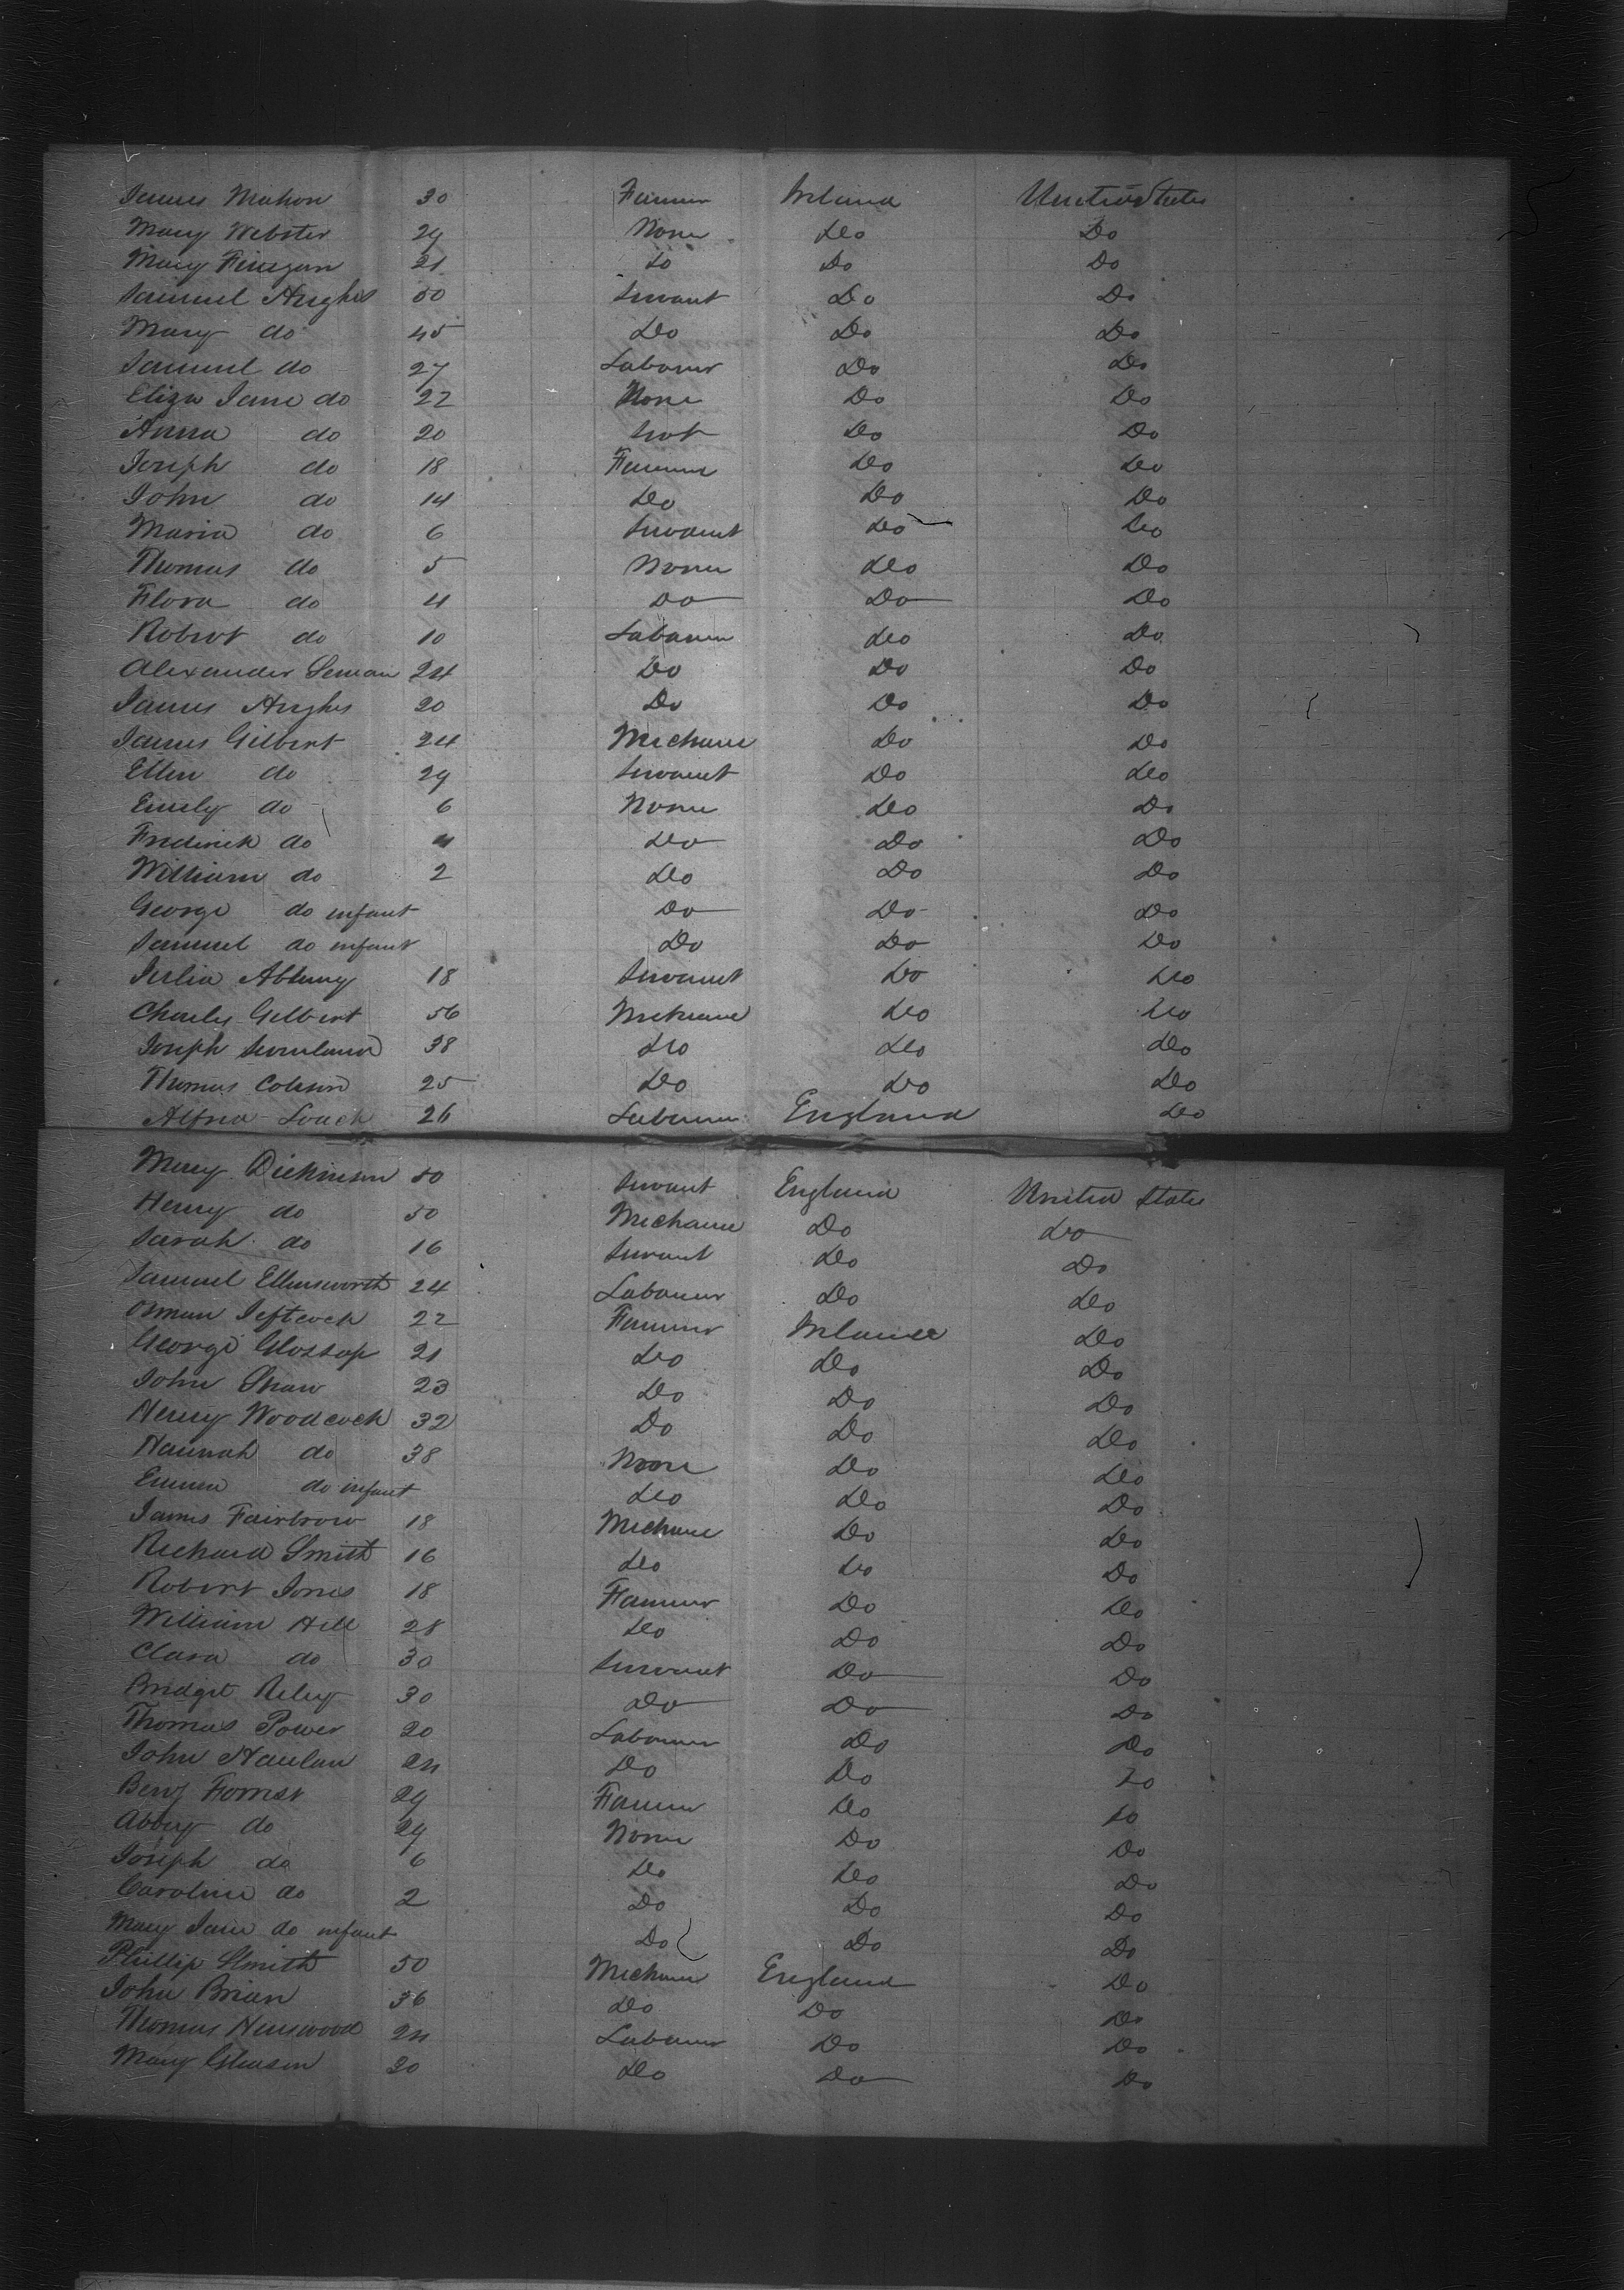 James Mahon 30 Farmer Ireland United States
Mary Webster 29 None Do Do
Mary Finegan 21 Do Do Do
Samuel Hughes 50 Servant Do Do
Mary do 45 Do Do Do
Samuel do 27 Labourer Do Do
Eliza Jane do 22 None Do Do
Anna do 20 Do Do
Joseph do 18 Farmer Do Do
John do 14 Do Do Do
Maria do 6 Servant Do Do
Thomas do 5 None Do Do
Flora do 4 Do Do Do
Robert do 10 Labourer Do Do
Alexander 24 Do Do Do
James Hughes 20 Do Do Do
James Gilbert 24 Mechanic Do Do
Ellen do 29 Servant Do Do
Emily do 6 None Do Do
Frederick do 4 Do Do Do
William do 2 Do Do Do
George do infant Do Do Do
Samuel do infant Do Do Do
Julia 18 Servant Do Do
Charles Gilbert 56 Mechanic Do Do
Joseph 38 Do Do Do
Thomas 25 Do Do Do
Alfred Loach 26 Labourer England Do
Mary Dickinson 50 Servant England United States
Henry do 50 Mechanic Do Do
Sarah do 16 Servant Do Do
Samuel Ellinsworth 24 Labourer Do Do
22 Farmer Ireland Do
George Glossop 21 Do Do Do
John Shaw 23 Do Do Do
Henry Woodcock 32 Do Do Do
Hannah do 38 None Do Do
Emma do infant Do Do Do
James Fairbrow 18 Mechanic Do Do
Richard Smith 16 Do Do Do
Robert Jones 18 Farmer Do Do
William Hill 28 Do Do Do
Clara do 30 Servant Do Do
Bridget Riley 30 Do Do Do
Thomas Power 20 Labourer Do Do
John Hanlan 24 Do Do Do
Benj Forrest 29 Farmer Do Do
Abbey do 29 None Do Do
Joseph do 6 Do Do Do
Caroline do 2 Do Do Do
Mary Jane do infant Do Do Do
Phillip Smith 50 Mechanic England Do
John Brian 36 Do Do Do
Thomas 24 Labourer Do Do
Mary Gleason 20 Do Do Do